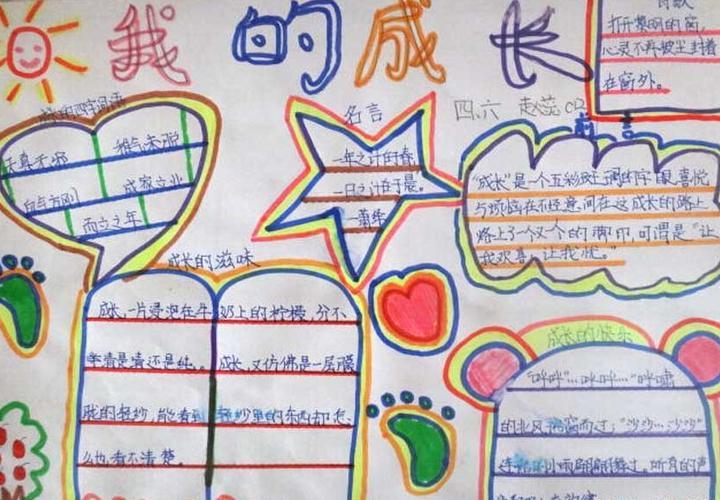 我的成长
打开黎明的窗,
心灵不再被尘封着
在窗外。
成长的四字词语
天真无邪 稚气未脱
血气方刚 成家立业
而立之年
名言
一年之计在于春
一日之计在于晨。
四、六
前言
"成长"是一个五彩
喜悦
与烦恼在不经意间在这成长的路上
烙上了一个又一个的脚印,可谓是"让
我欢喜,让我忧。"
成长的滋味
成长,一片浸泡在牛奶上的柠檬,分不
清是清还是纯。成长,又仿佛是一层朦
胧的轻纱,能看到轻纱里的东西却怎
么也看不清楚。
成长的快乐
"哗哗"…哗哗…"呼啸
的北风 而过;"沙沙…沙沙"